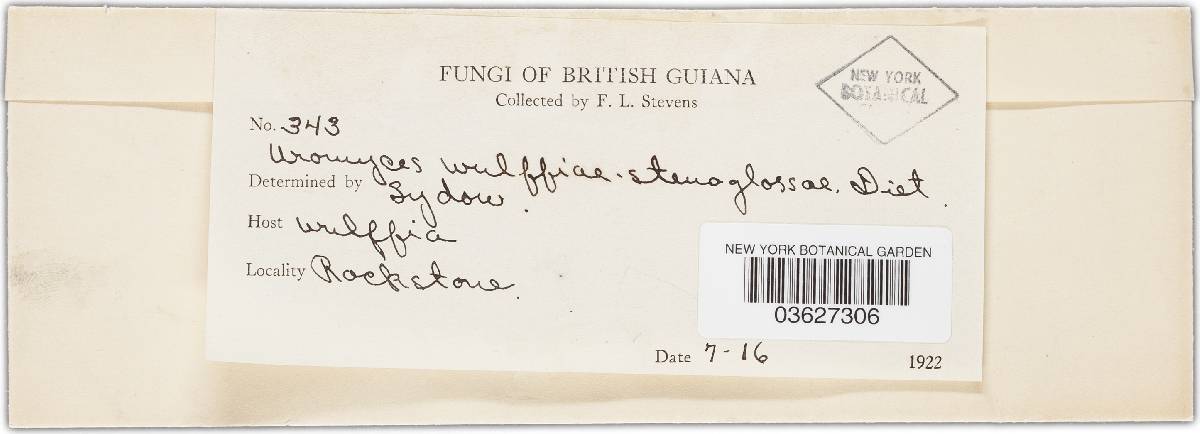 FUNGI OF BRITISH GUIANA
Collected by F. L. Stevens
NEW YORK
BOTANICAL
No. 343
Uromyces wulffiae-stenoglossae. Diet.
Determined by Sydow.
Host wulffia
Locality Rockstone.
NEW YORK BOTANICAL GARDEN
03627306
Date 7-16 1922